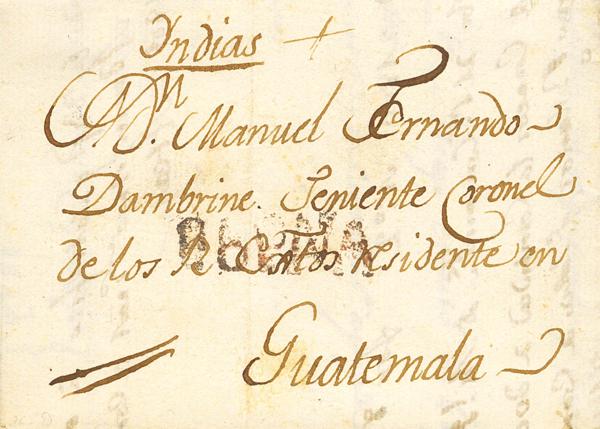 Indias +
A Dn. Manuel Fernando
Dambrine. Teniente Coronel
de los Rs. Extos residente en
Guatemala